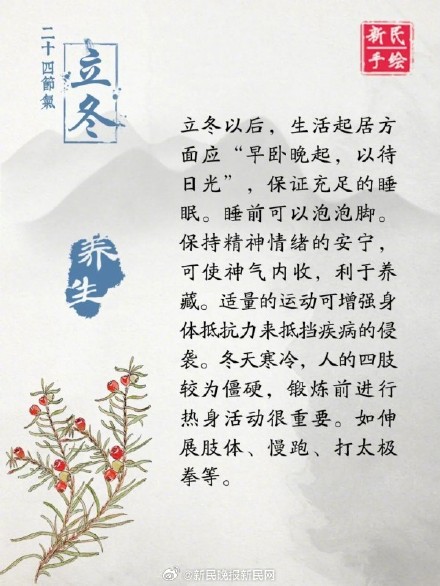 二十四節氣
立冬
新民
手绘
养生
立冬以后，生活起居方
面应“早卧晚起，以待
日光”，保证充足的睡
眠。睡前可以泡泡脚。
保持精神情绪的安宁，
可使神气内收，利于养
藏。适量的运动可增强身
体抵抗力来抵挡疾病的侵
袭。冬天寒冷，人的四肢
较为僵硬，锻炼前进行
热身活动很重要。如伸
展肢体、慢跑、打太极
拳等。
@新民晚报新民网